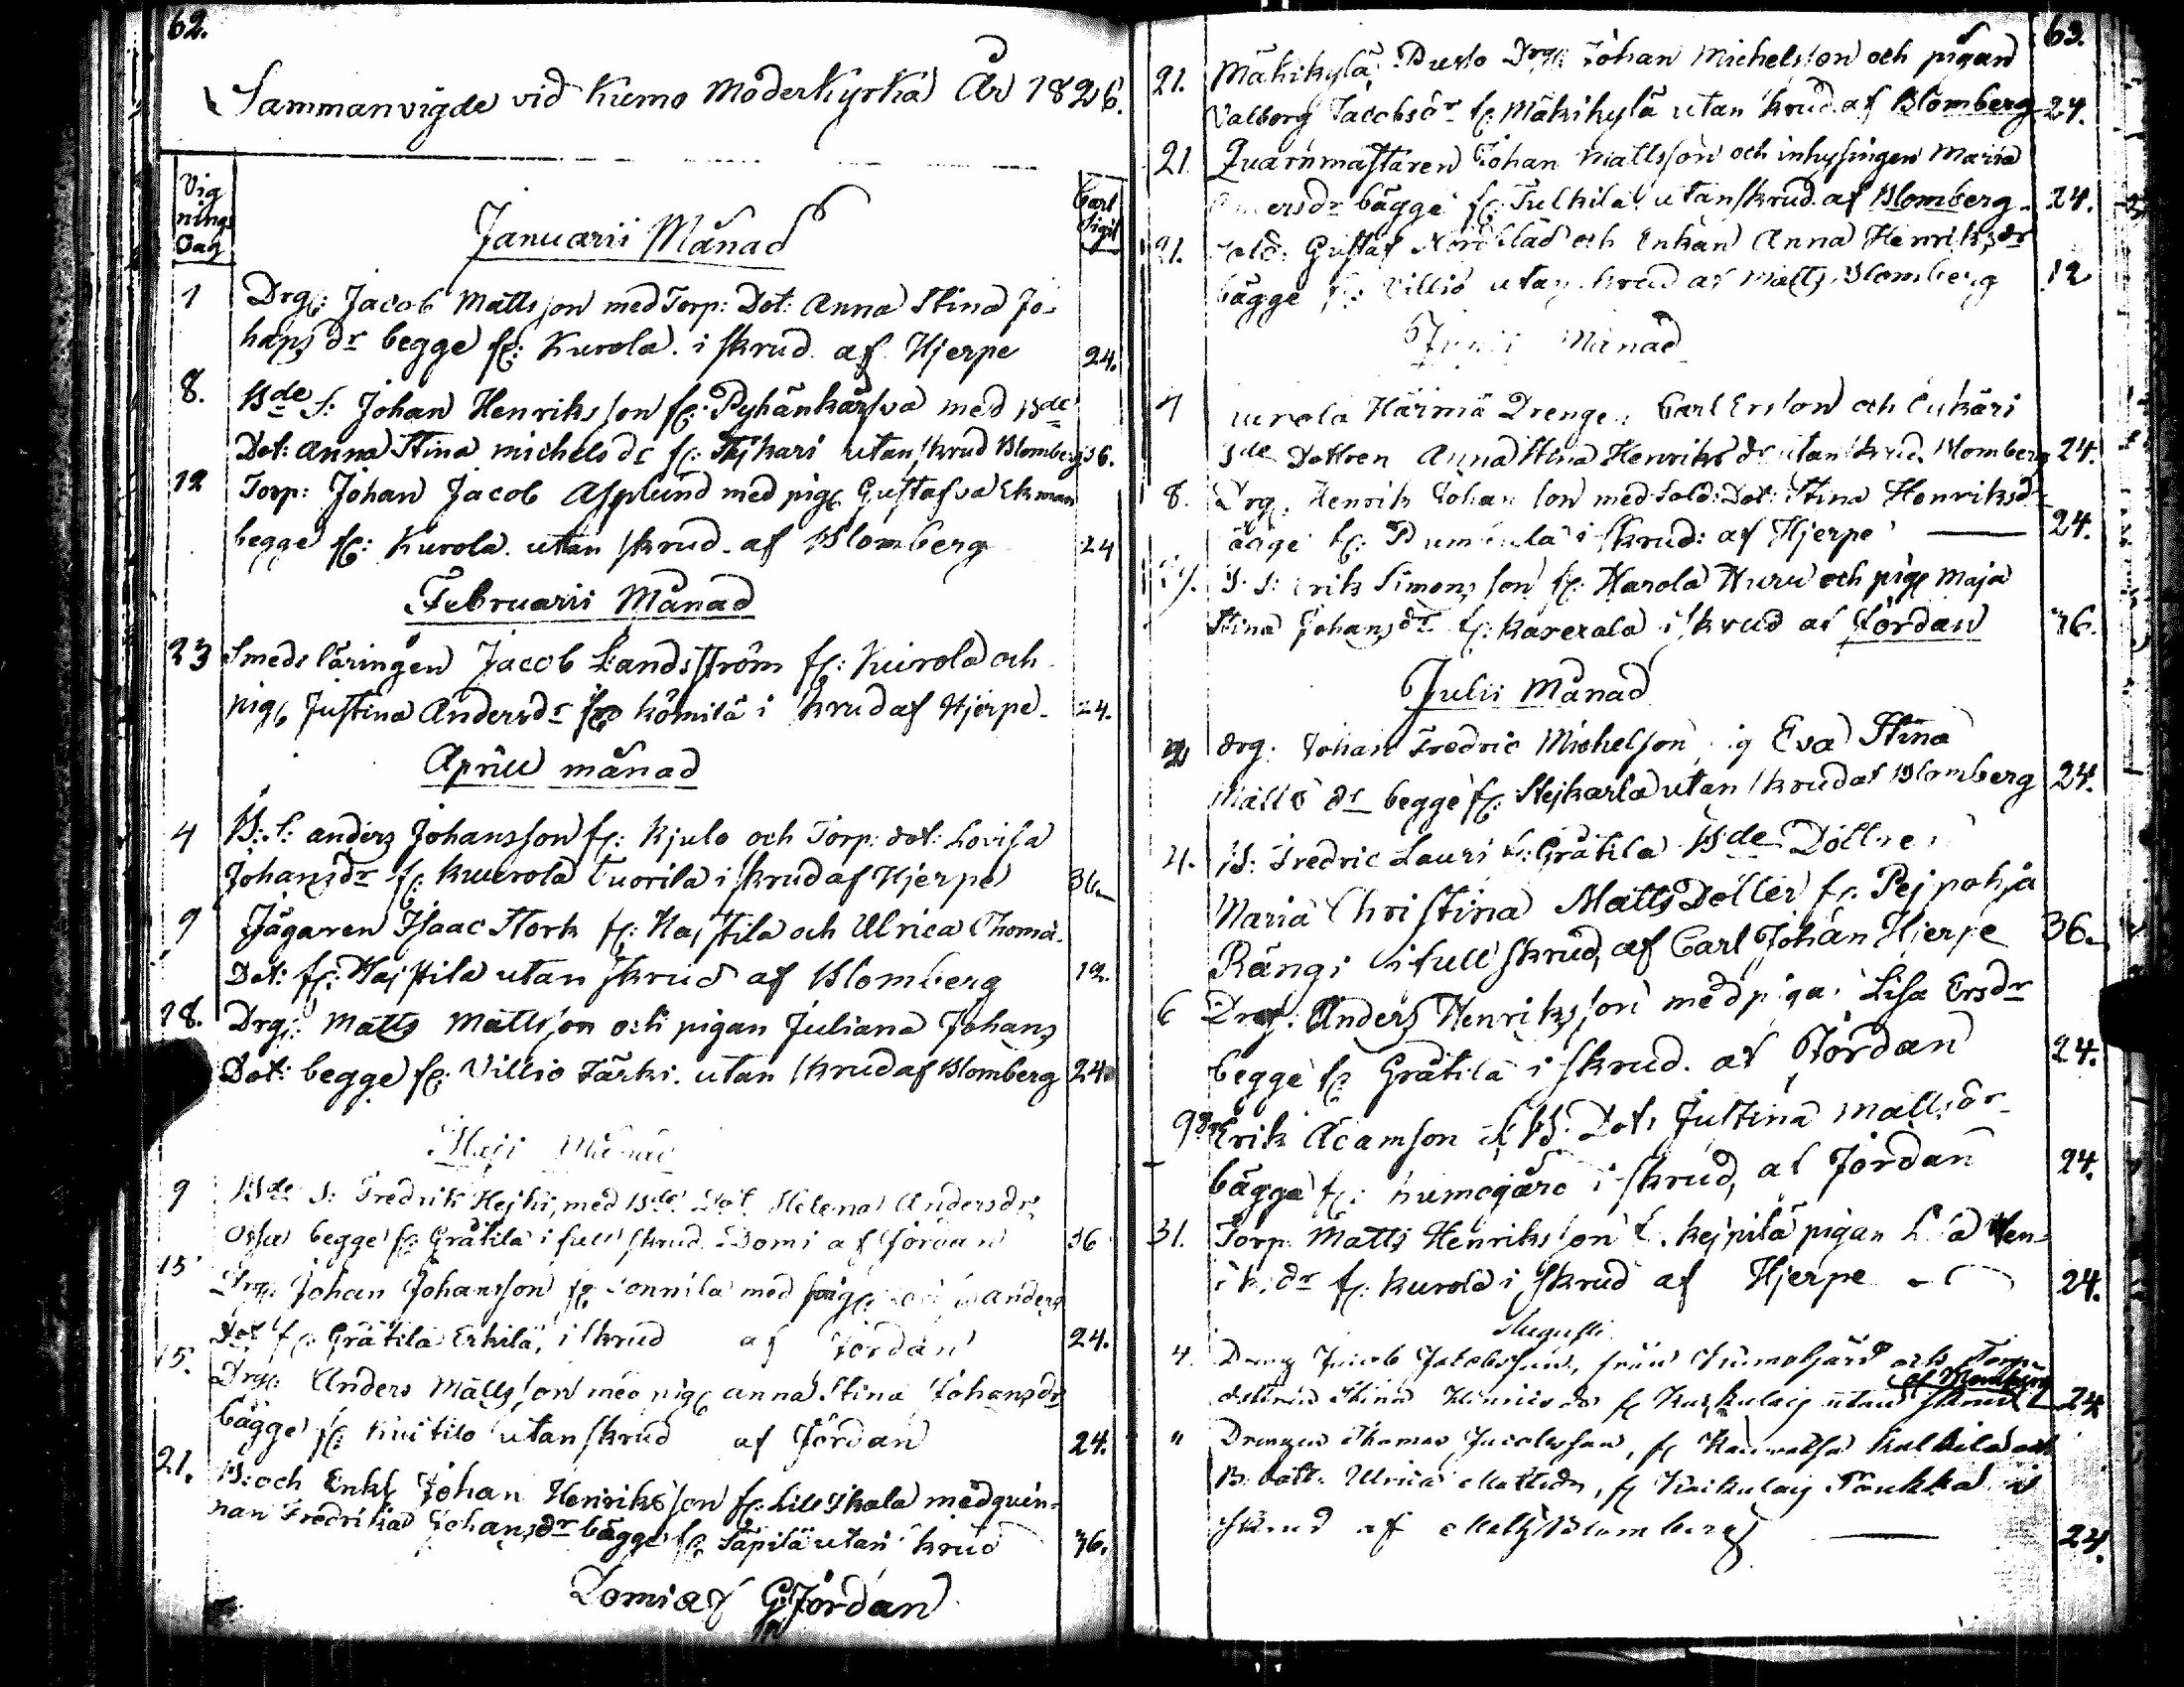 62.
Sammanvigde vid Kumo Moderkyrka År 1826.
Vig
nings
Dag
Januarii Månad
1 Drg: Jacob Mattsson med Torp: Dot: Anna Stina Jo-
hansdr begge fr: Kurola. i skrud. af Hjerpe 24.
8. Bde S: Johan Henriksson fr: Pyhänkårfva med Bde
Dot: Anna Stina Michelsdr fr: utan skrud Blomberg 36.
12 Torp: Johan Jacob Asplund med pig Gustafva Ekman
begge fr: Kurola. utan skrud. af Blomberg 24
Februarii Månad
23 Smedsläringen Jacob Landsström fr: Kuirola och
pig Justina Andersdr fr Kömilä i skrud af Hjerpe. 24.
Aprill månad
4 B: S: anders Johansson fr: Kjulo och Torp: dot: Lovisa
Johansdr fr: Kuurola Tuorila i skrud af Hjerpe 36
9 Jägaren Isaac Stork fr: Hajstila och Ulrica Thoma-
Dot: fr: Hajstila utan skrud af Blomberg 12.
28. Drg: Matts Mattsson och pigan Juliana Johans
Dot: begge fr: Villio Järki. utan skrud af Blomberg 24
Maji Månad
9 Bde S: Fredrik Hejki, med Bde Dot Helena Andersdr
begge fr Gråtila i full skrud Domi af Jordan 36
15 Drg Johan Johansson fr Sonnila med pig anders
Dot fr: Gråtila Erkilä, i skrud af Jordan 24.
15. Drg: Anders Mattsson med pig anna Stina Johansdr
bägge fr: Kuitilo utan skrud af Jordan 24.
21. B: och Enkl Johan Henriksson fr: Lill Skala med quin-
nan Fredrika Johansdr bägge fr Säpilä utan skrud 36.
Domi af G: Jordan
63.
21. Mäkikylä Pusto Drg Johan Michelsson och pigan
Valborg Jacobsdr fr: Mäkikylä utan skrud. af Blomberg 24.
21. Quarnmästaren Johan Mattsson och inhysingen Maria
bägge fr: Tulkila utan skrud. af Blomberg. 24.
21. Sold: Gustaf Nordblad och Enkan Anna Henriksdr
bägge fr: Villio utan skrud af Matts Blomberg 12
Junii Månad
7 Härmä Drengen Carl Ersson och
Bde Dottren Anna Stina Henriksdr utan skrud. Blomberg 24.
8. Drg. Henrik Johansson med Sold: Dot: Stina Henriksdr
fr: i skrud: af Hjerpe 24.
B. S: Erik Simonsson fr: Harola Huru och pig Maja
Stina Johansdr fr: i skrud af Jordan 36.
Julii Månad
drg. Johan Fredric Michelson Eva Stina
Matts dr begge fr: utan skrud af Blomberg 24.
4. B: Fredric Lauri fr: Gråtila Bde Dottren
Maria Christina Matts Dotter fr. Pejpohja
Rängi i full skrud, af Carl Johan Hjerpe 36
6 Drg: Anders Henriksson med piga Lisa Ersdr
begge fr Gråtila i skrud. af Jordan 24.
9 Drg Erik Adamson B: Dot: Justina Mattsdr
bägge fr: Kumogård i skrud, af Jordan 24.
31. Torp. Matts Henriksson f. Kejpilä pigan Hen-
riksdr fr: Kurola i skrud af Hjerpe 24.
Augusti
4. Dreng Jacob Jacobsson, från Kumogård och Torp-
dottren Stina Henricsdr fr utan skrud af Blomberg 24
" Drengen Thomas Jacobsson, fr Kulkila och
B. dott. Ulrica Mattsdr, fr i
skrud af Matts Blomberg 24.